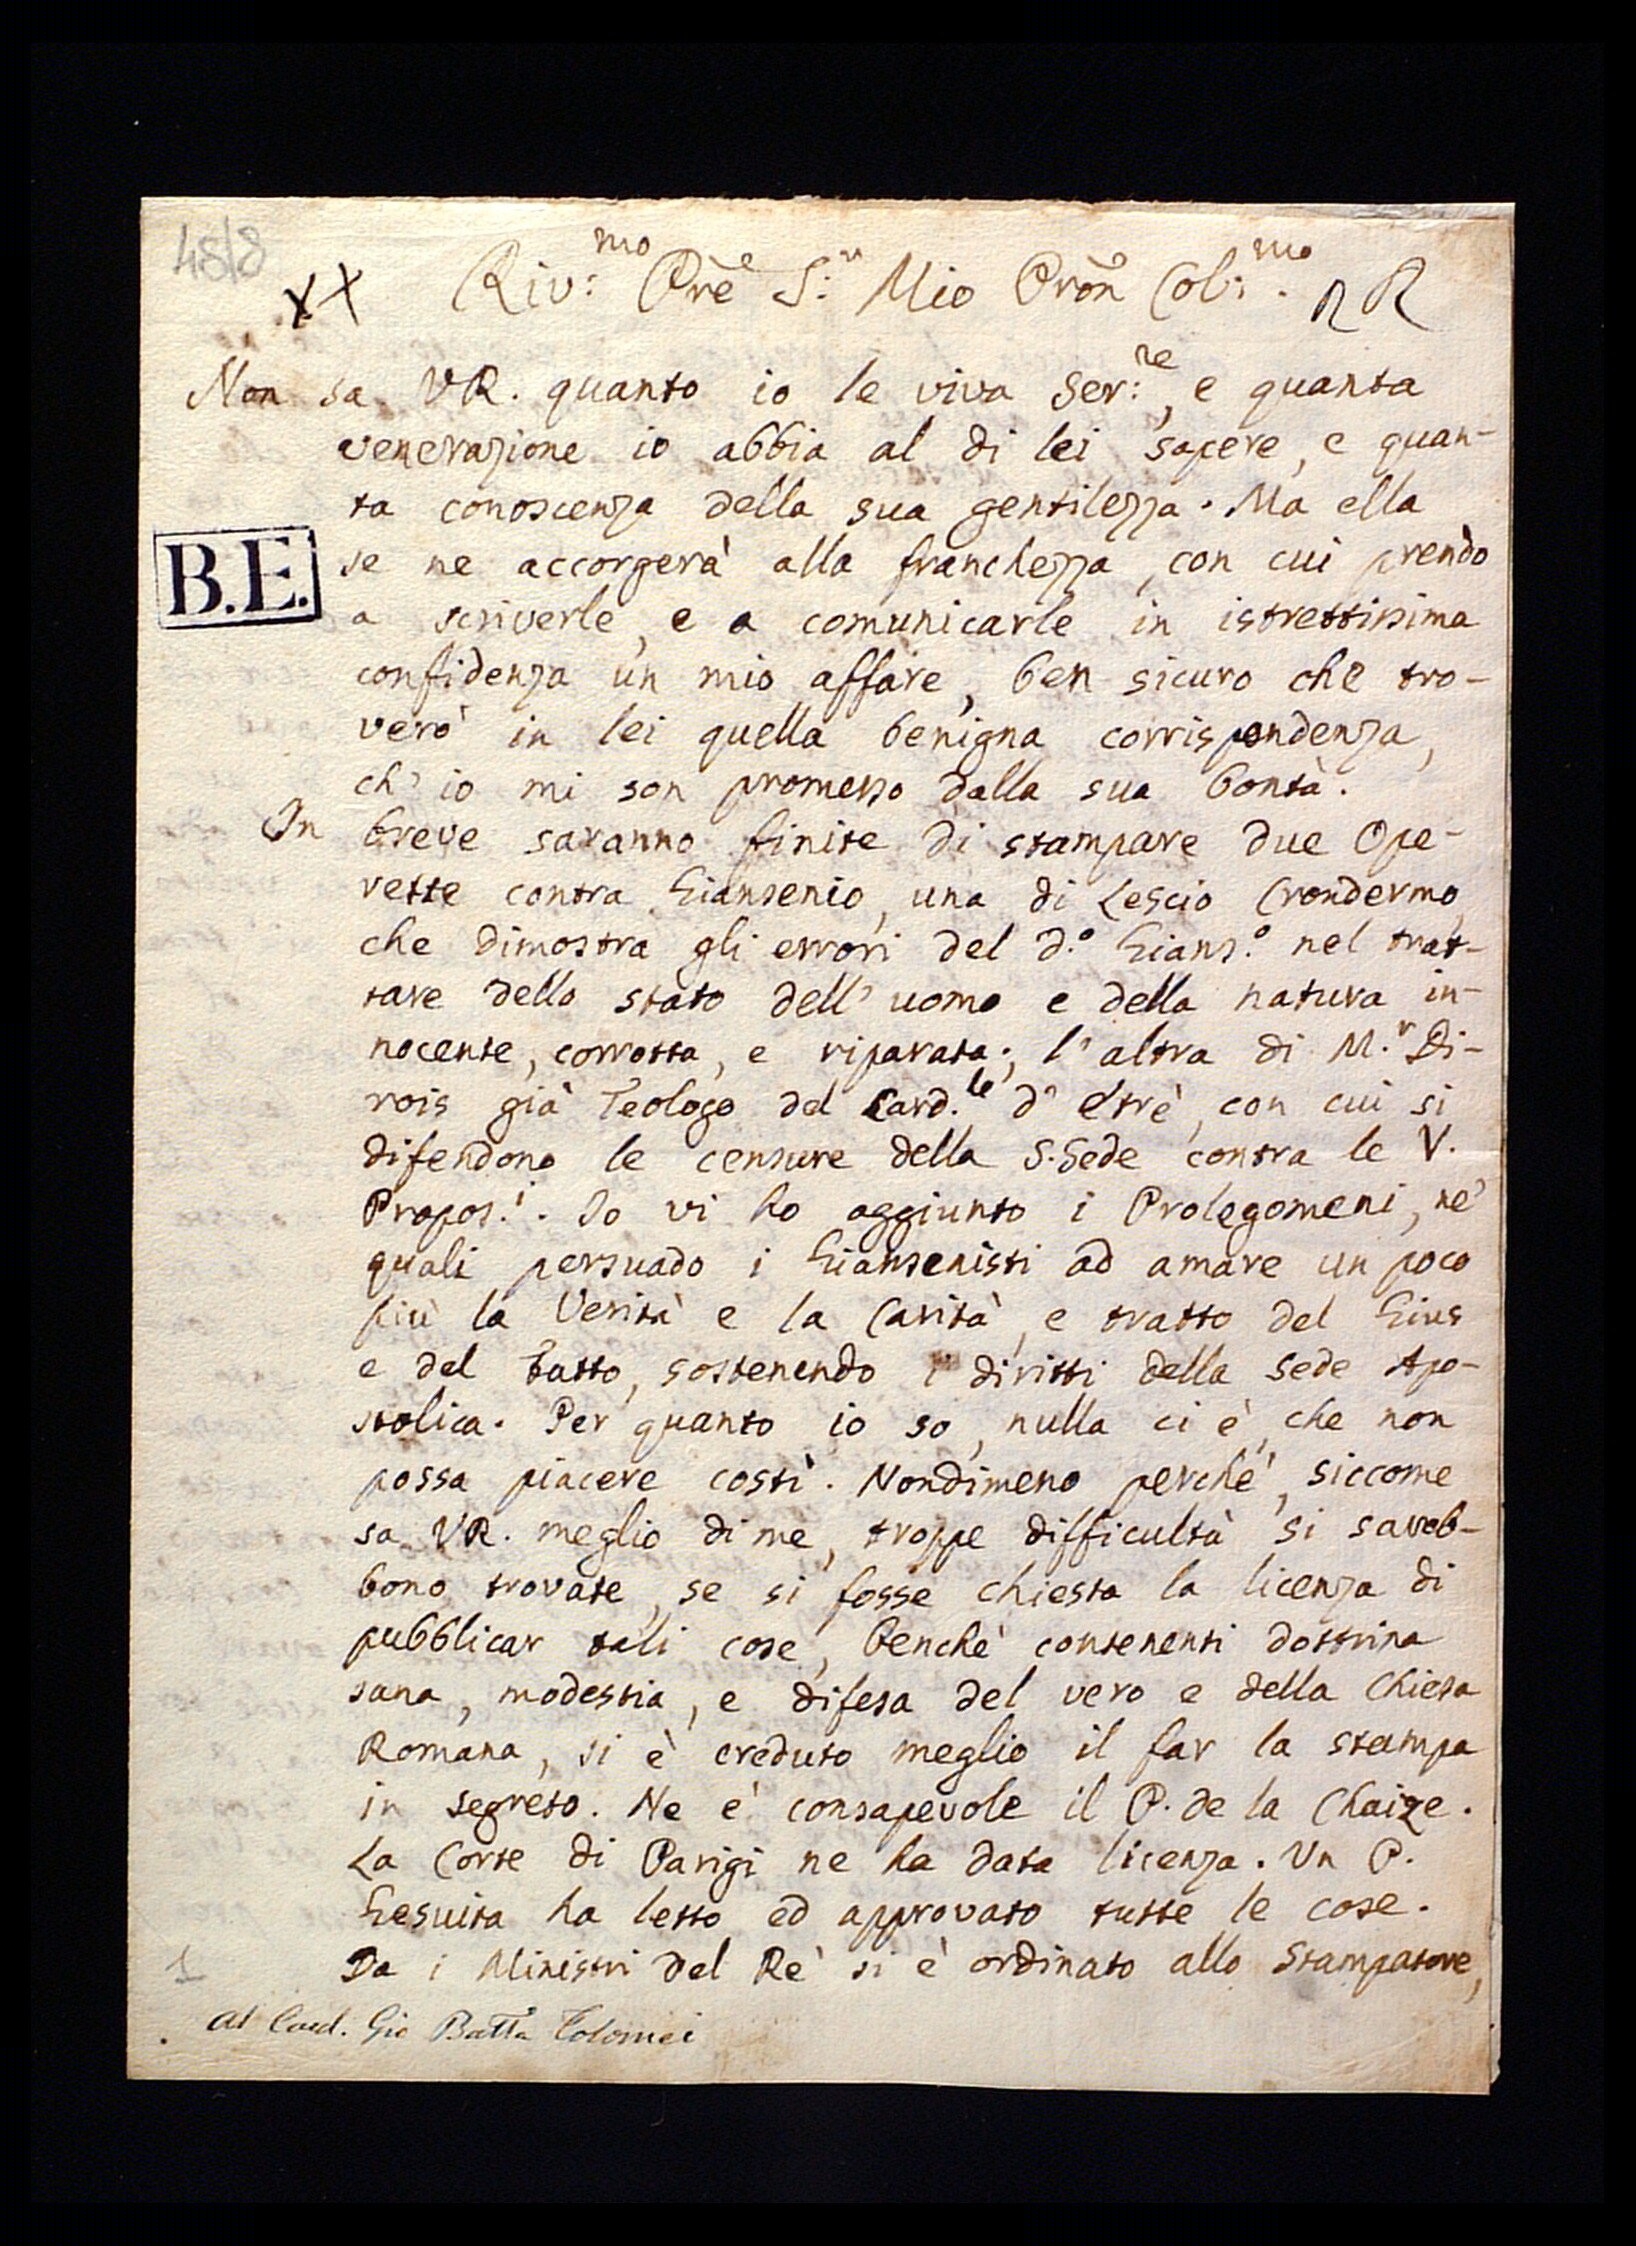 48/8
XX Riv:mo Prẽ S:r Mio Prõn Col:mo. RR
Non sa VR. quanto io le viva Ser:re, e quanta
venerazione io abbia al di lei sapere, e quan-
ta conoscenza della sua gentilezza. Ma ella
B.E.
se ne accorgerà alla franchezza, con cui prendo
a scriverle, e a comunicarle in istrettissima
confidenza un mio affare, ben sicuro che tro-
verò in lei quella benigna corrispondenza,
ch' io mi son promesso dalla sua bontà.
In breve saranno finite di stampare due Ope-
rette contra Giansenio, una di Lescio Crondermo,
che dimostra gli errori del d.o Gians.o nel trat-
tare dello stato dell' uomo e della natura in-
nocente, corrotta, e riparata; l' altra di M.r Di-
rois già Teologo del Card.le d' Etrè, con cui si
difendono le censure della S. Sede contra le V.
Propos.i. Io vi ho aggiunto i Prolegomeni, ne'
quali persuado i Giansenisti ad amare un poco
più la Verità e la Carità, e tratto del Gius
e del Fatto, sostenendo i diritti della Sede Apo-
stolica. Per quanto io so, nulla ci è, che non
possa piacere costì. Nondimeno perchè, siccome
sa VR. meglio di me, troppe difficultà si sareb-
bono trovate, se si fosse chiesta la licenza di
pubblicar tali cose, benchè contenenti dottrina
sana, modestia, e difesa del vero e della Chiesa
Romana, si è creduto meglio il far la stampa
in segreto. Ne è consapevole il P. de la Chaize.
La Corte di Parigi ne ha data licenza. Un P.
Gesuita ha letto ed approvato tutte le cose.
Da i Ministri del Rè si è ordinato allo Stampatore,
1
al Card. Gio Batta Tolomei